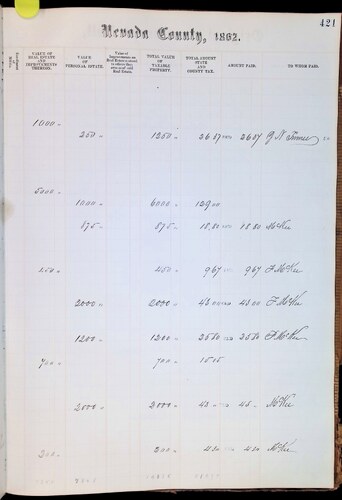 421
Nevada County, 1862.
VALUE OF REAL ESTATE AND IMPROVEMENTS THEREON. VALUE OF PERSONAL ESTATE. TOTAL VALUE OF TAXABLE PROPERTY. TOTAL AMOUNT STATE AND COUNTY TAX. AMOUNT PAID. TO WHOM PAID.
1000
250 1250 26 87 26 87
5000
1000 6000 129 00
875 875 18.80 18 80 McKee
450 450 9 67 9 67 F McKee
2000 2000 43 00 43 00 F McKee
1200 1200 25 80 25 80 F McKee
700 700 15 05
2000 2000 43 43 McKee
200 200 4 30 4 30 McKee